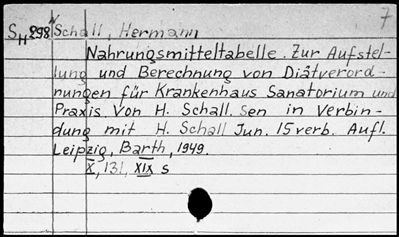 7
S_H 298 Schall, Hermann
Nahrungsmitteltabelle. Zur Aufstel-
lung und Berechnung von Diätverord-
nungen für Krankenhaus Sanatorium und
Praxis. Von H. Schall. Sen in Verbin-
dung mit H. Schall Jun. 15 verb. Aufl.
Leipzig, Barth, 1949.
X, 131, XIX s